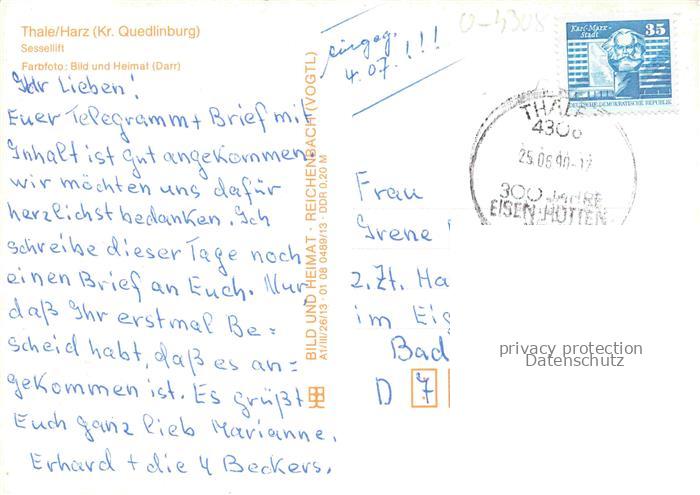 Thale/Harz (Kr. Quedlinburg)
Sessellift
Farbfoto: Bild und Heimat (Darr)
Ihr Lieben!
Euer Telegramm + Brief mit
Inhalt ist gut angekommen,
wir möchten uns dafür
herzlichst bedanken. Ich
schreibe dieser Tage noch
einen Brief an Euch. Nur
daß Ihr erstmal Be=
scheid habt, daß es an=
gekommen ist. Es grüßt
Euch ganz lieb Marianne,
Erhard + die 4 Beckers.
BILD UND HEIMAT · REICHENBACH (VOGTL)
A1/III/26/13 · 01 08 0489/13 · DDR 0,20 M
eingeg.
4.07.!!!
0-4308
Karl-Marx-
Stadt
35
DEUTSCHE DEMOKRATISCHE REPUBLIK
THALE
4308
25.06.90-17
300 JAHRE
EISEN-HÜTTEN
Frau
Irene
z.Zt. Ha
im Eig
Bad
D 7
privacy protection
Datenschutz